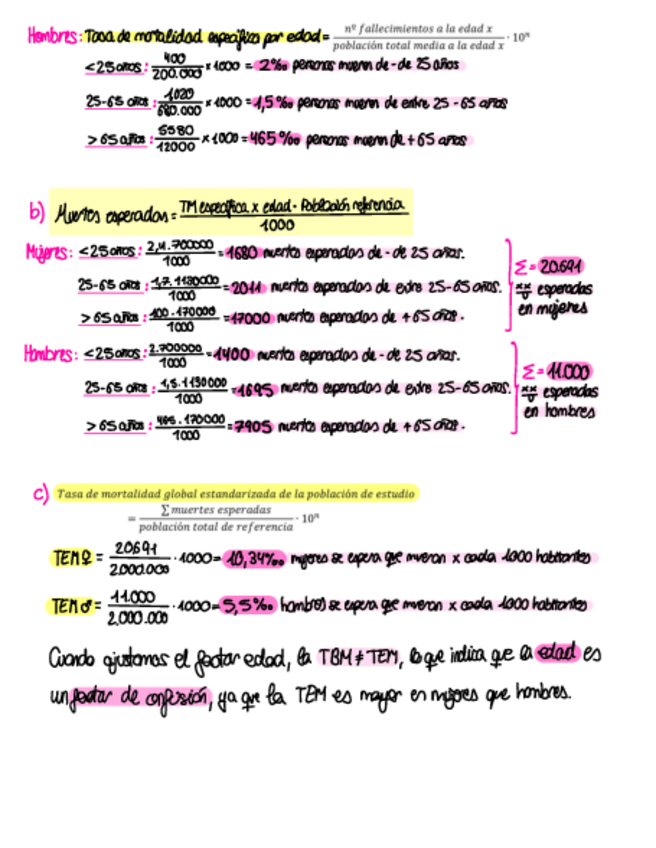 Hombres: Tasa de mortalidad específica por edad = nº fallecimientos a la edad x / población total media a la edad x · 10ⁿ
<25 años: 400/200.000 x 1000 = 2‰ personas mueren de - de 25 años
25-65 años: 1020/680.000 x 1000 = 1,5‰ personas mueren de entre 25-65 años
>65 años: 5580/12000 x 1000 = 465‰ personas mueren de +65 años
b) Muertes esperadas = TM específica x edad · Población referencia / 1000
Mujeres: <25 años: 2,4·700000/1000 = 1680 muertes esperadas de - de 25 años.
25-65 años: 1,7·1130000/1000 = 2011 muertes esperadas de entre 25-65 años.
>65 años: 100·170000/1000 = 17000 muertes esperadas de +65 años.
Σ = 20.691
esperadas
en mujeres
Hombres: <25 años: 2·700000/1000 = 1400 muertes esperadas de - de 25 años.
25-65 años: 1,5·1130000/1000 = 1695 muertes esperadas de entre 25-65 años.
>65 años: 465·170000/1000 = 7905 muertes esperadas de +65 años.
Σ = 11.000
esperadas
en hombres
c) Tasa de mortalidad global estandarizada de la población de estudio
= Σ muertes esperadas / población total de referencia · 10ⁿ
TEM♀ = 20691/2000.000 · 1000 = 10,34‰ mujeres se espera que mueran x cada 1000 habitantes
TEM♂ = 11.000/2.000.000 · 1000 = 5,5‰ hombres se espera que mueran x cada 1000 habitantes
Cuando ajustamos el factor edad, la TBM ≠ TEM, lo que indica que la edad es
un factor de confusión, ya que la TEM es mayor en mujeres que hombres.